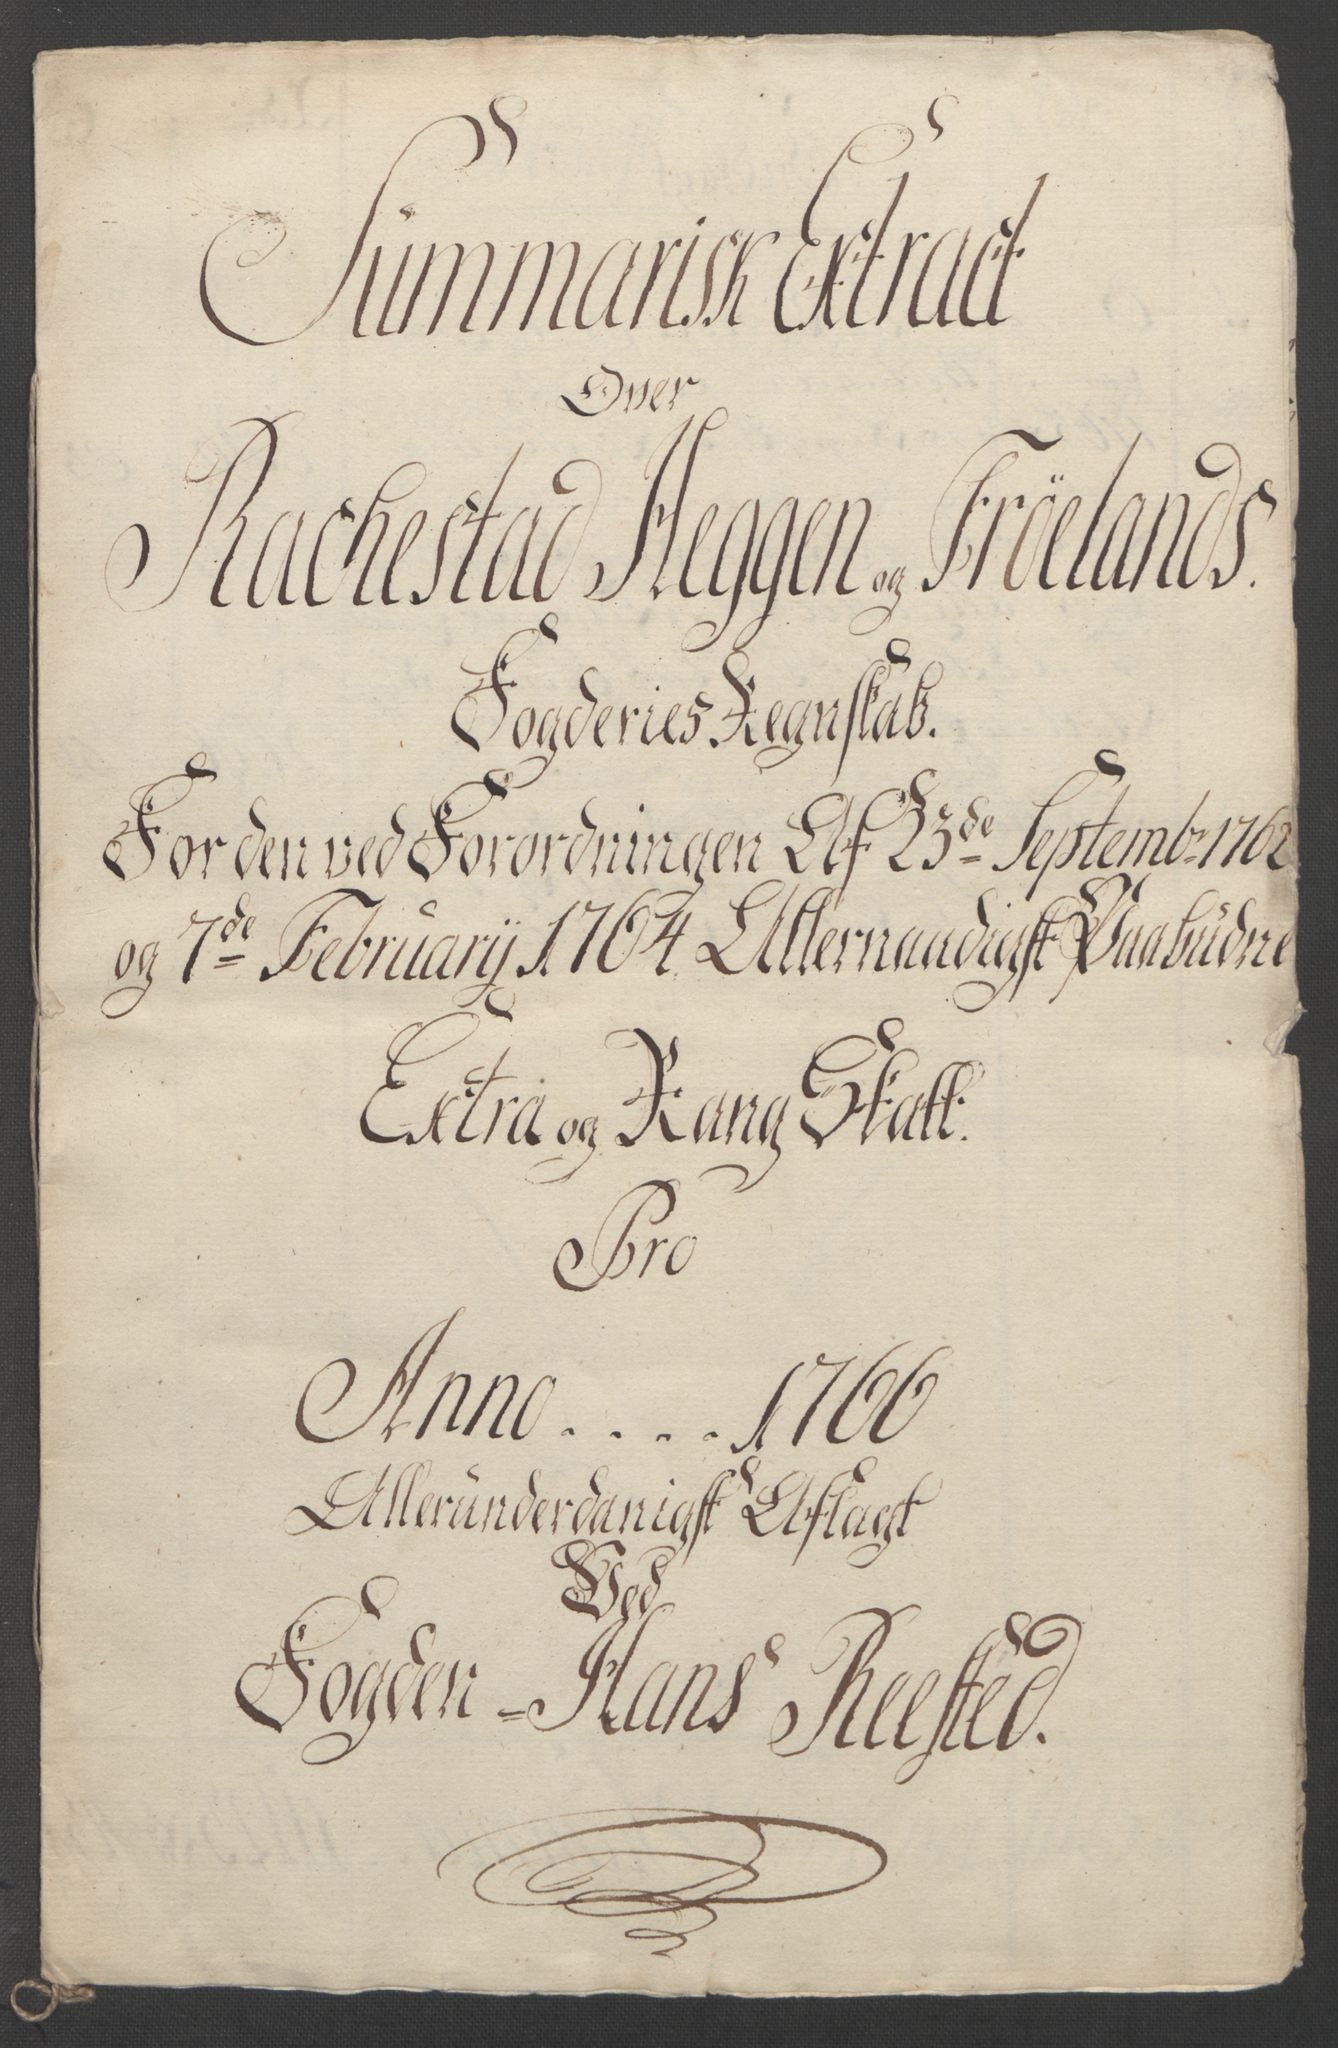 Summarisk Extract
Over
Rachestad Heggen og Fröelands.
Fogderies Regnskab.
For den ved Forordningen Af 23de Septembr: 1762
og 7de Februarij 1764 Allernaadigst Paabudne
Extra og Rang Skatt.
Pro
Anno . . . . 1766
Allerunderdanigst Aflagt
Ved
Fogden = Hans Reested.